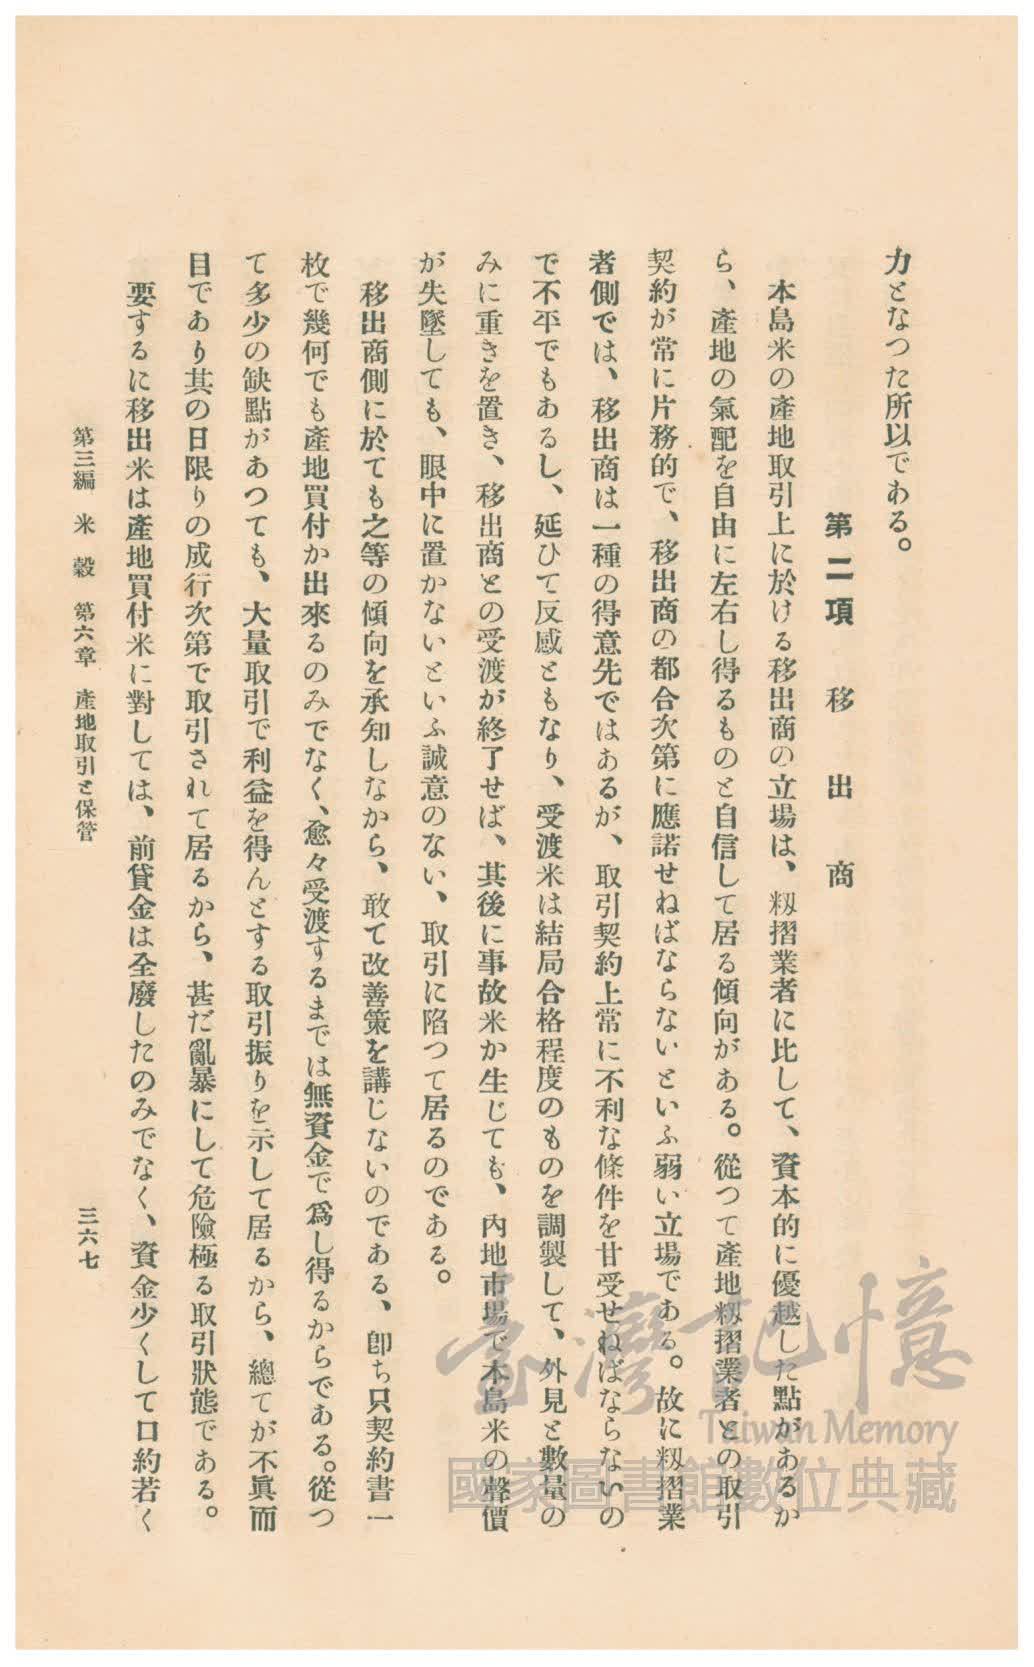 力となつた所以である。
第二項　移出商
本島米の產地取引上に於ける移出商の立場は、籾摺業者に比して、資本的に優越した點があるか
ら、產地の氣配を自由に左右し得るものと自信して居る傾向がある。從つて產地籾摺業者との取引
契約が常に片務的で、移出商の都合次第に應諾せねばならないといふ弱い立場である。故に籾摺業
者側では、移出商は一種の得意先ではあるが、取引契約上常に不利な條件を甘受せねばならないの
で不平でもあるし、延ひて反感ともなり、受渡米は結局合格程度のものを調製して、外見と數量の
みに重きを置き、移出商との受渡が終了せば、其後に事故米か生じても、內地市場で本島米の聲價
が失墜しても、眼中に置かないといふ誠意のない、取引に陷つて居るのである。
移出商側に於ても之等の傾向を承知しなから、敢て改善策を講じないのである、卽ち只契約書一
枚で幾何でも產地買付か出來るのみでなく、愈々受渡するまでは無資金で爲し得るからである。從つ
て多少の缺點があつても、大量取引で利益を得んとする取引振りを示して居るから、總てが不眞面
目であり其の日限りの成行次第で取引されて居るから、甚だ亂暴にして危險極る取引狀態である。
要するに移出米は產地買付米に對しては、前貸金は全廢したのみでなく、資金少くして口約若く
第三編　米穀　第六章　產地取引と保管
三六七
臺灣記憶
Taiwan Memory
國家圖書館數位典藏